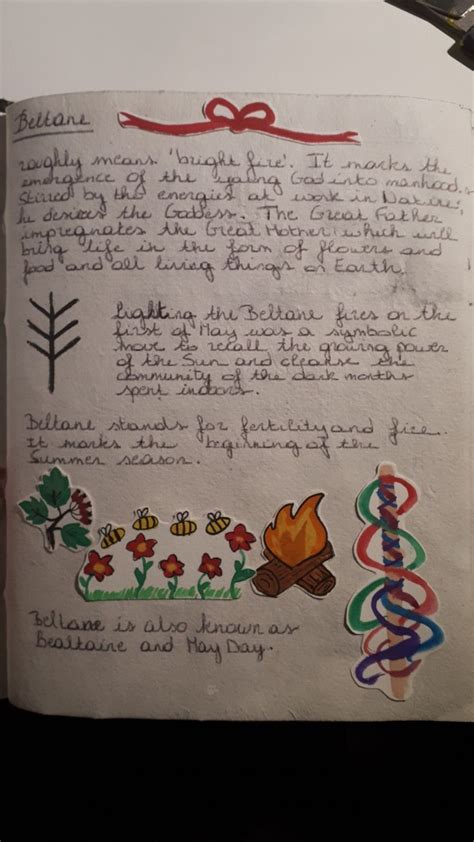 Beltane
roughly means 'bright fire'. It marks the
emergence of the young God into manhood.
Stirred by the energies at work in Nature,
he desires the Goddess. The Great Father
impregnates the Great Mother which will
bring life in the form of flowers and
food and all living things on Earth.
lighting the Beltane fires on the
first of May was a symbolic
to recall the growing power
of the Sun and cleanse the
community of the dark months
spent indoors.
Beltane stands for fertility and fire.
It marks the beginning of the
Summer season.
Beltane is also known as
Bealtaine and May Day.